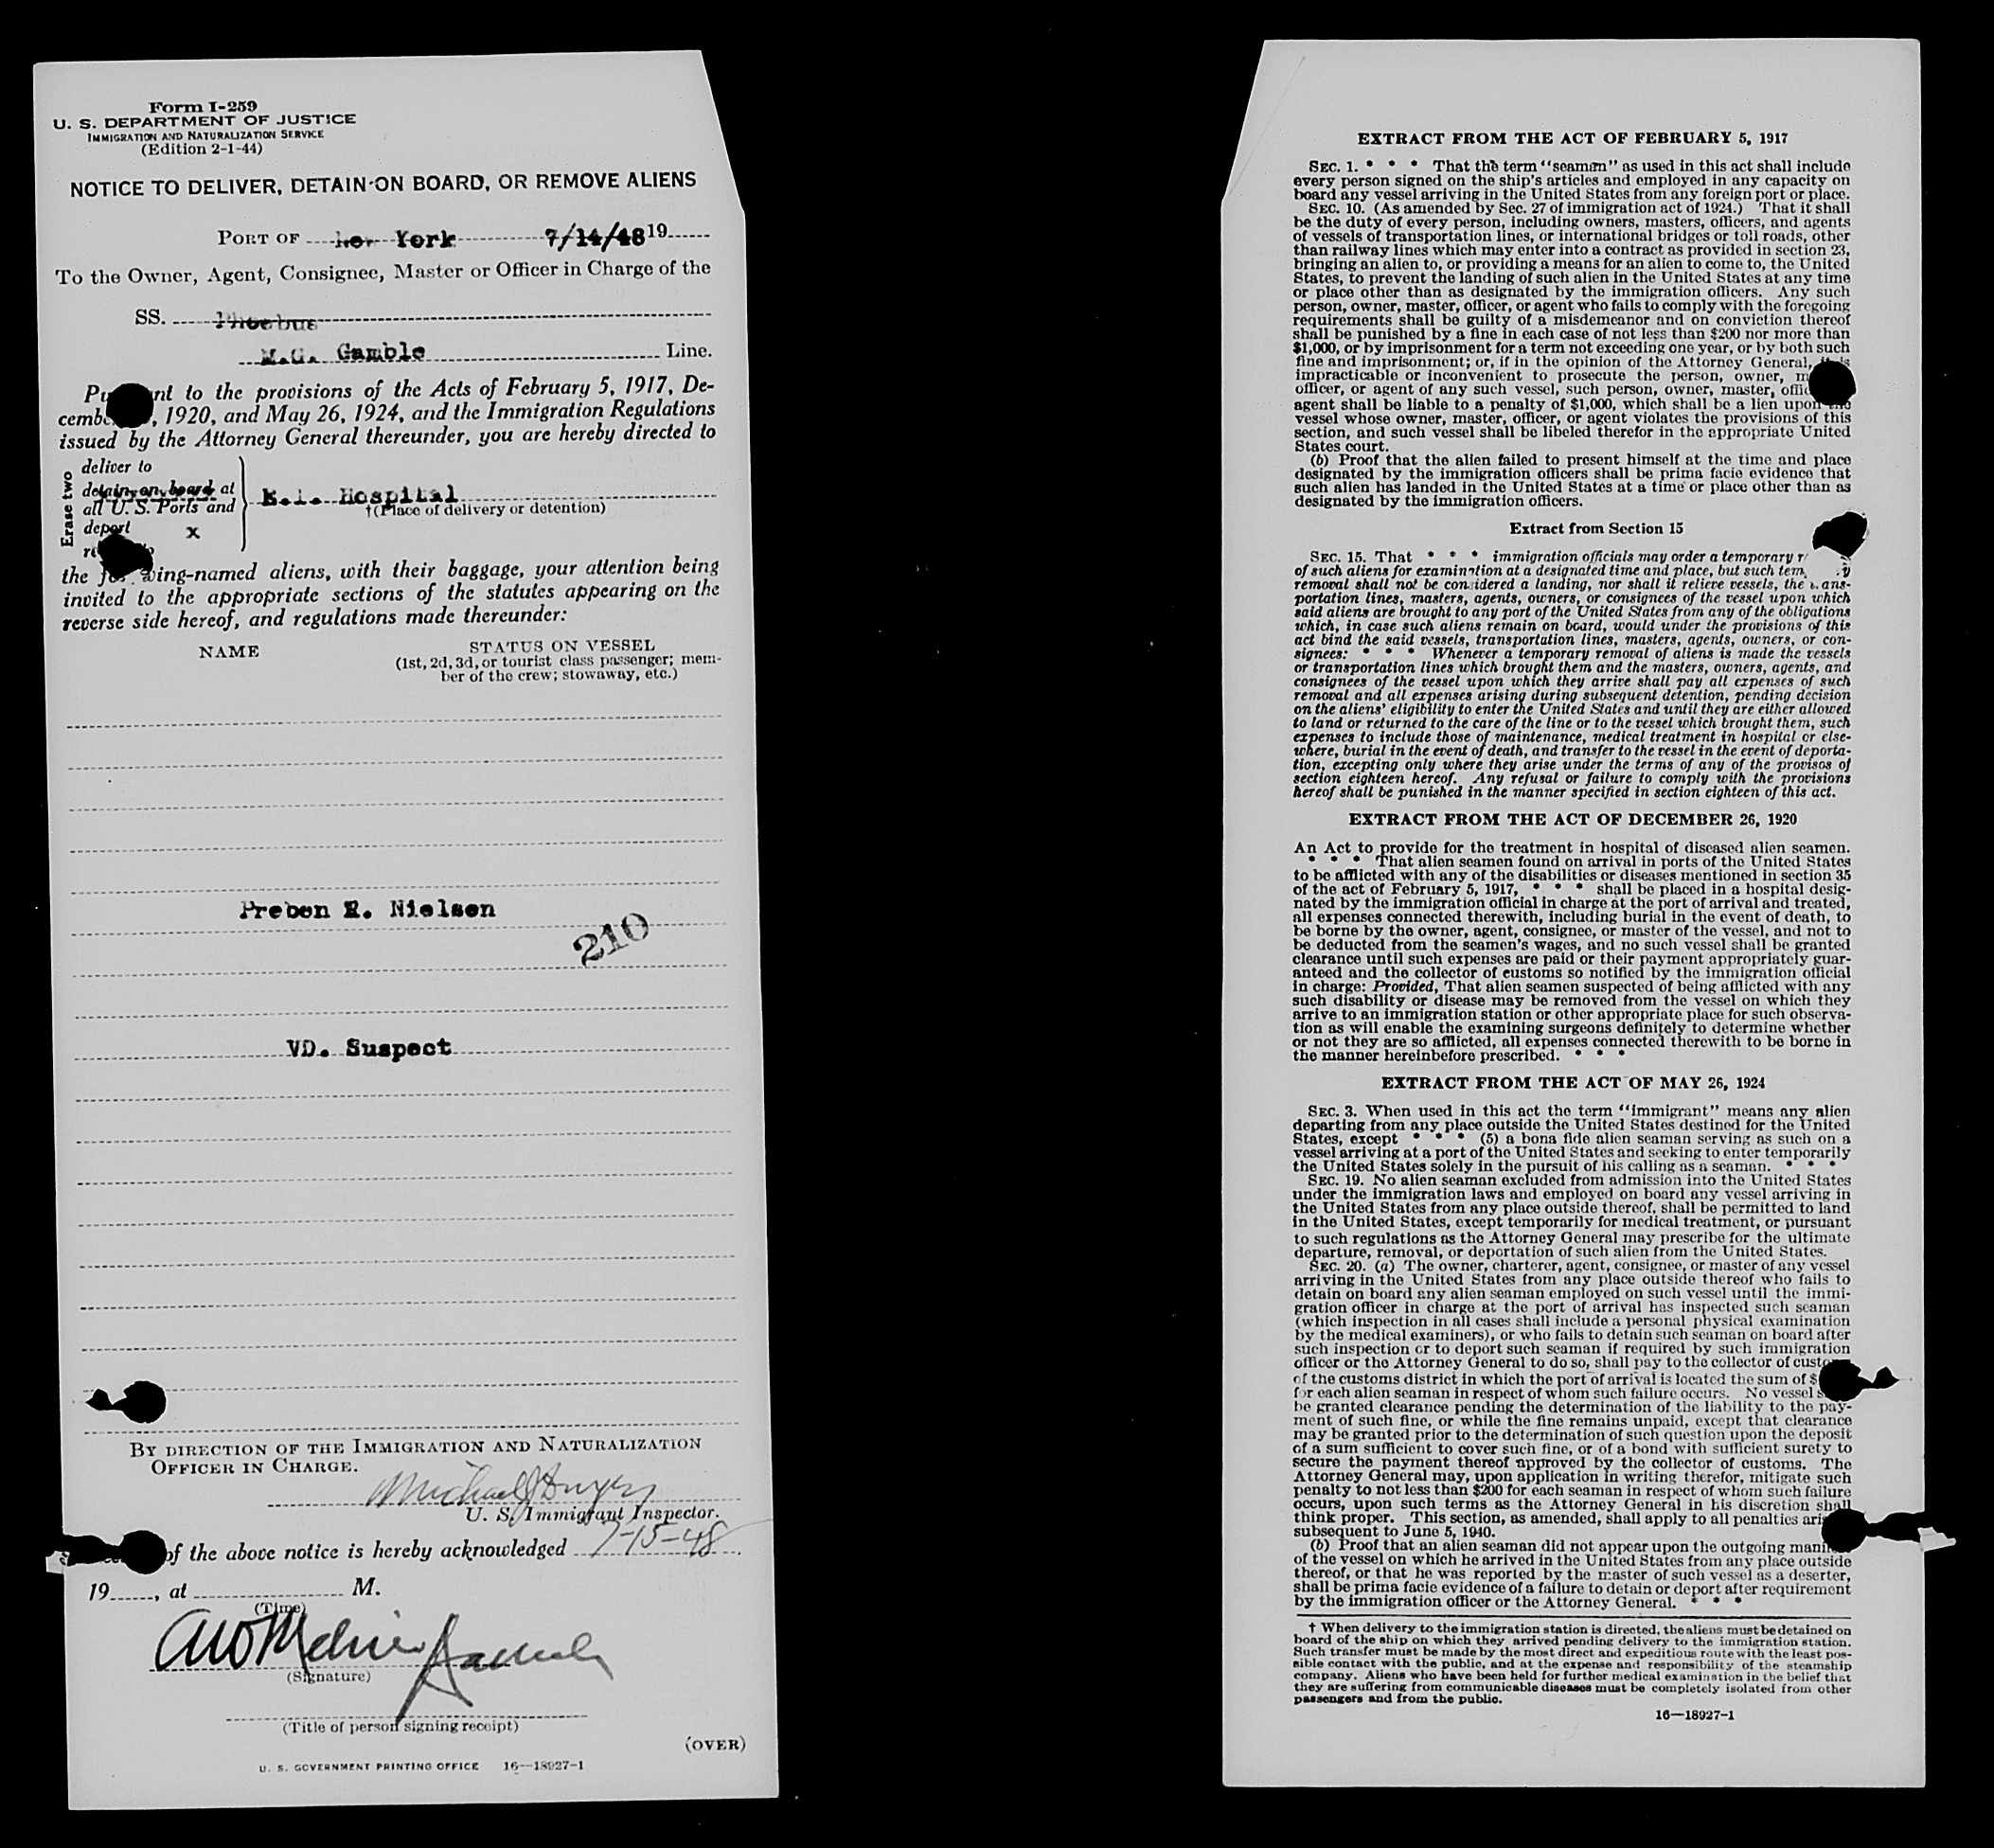 Form I-259
U. S. DEPARTMENT OF JUSTICE
IMMIGRATION AND NATURALIZATION SERVICE
(Edition 2-1-44)
NOTICE TO DELIVER, DETAIN ON BOARD, OR REMOVE ALIENS
PORT OF New York 7/14/48 19
To the Owner, Agent, Consignee, Master or Officer in Charge of the
SS. Phoebus
M.G. Gamble Line.
nt to the provisions of the Acts of February 5, 1917, De-
cembe , 1920, and May 26, 1924, and the Immigration Regulations
issued by the Attorney General thereunder, you are hereby directed to
Erase two
deliver to
detain on board at
all U. S. Ports and
deport x
E.I. Hospital
†(Place of delivery or detention)
the wing-named aliens, with their baggage, your attention being
invited to the appropriate sections of the statutes appearing on the
reverse side hereof, and regulations made thereunder:
NAME
STATUS ON VESSEL
(1st, 2d, 3d, or tourist class passenger; mem-
ber of the crew; stowaway, etc.)
Preben E. Nielsen
210
VD. Suspect
BY DIRECTION OF THE IMMIGRATION AND NATURALIZATION
OFFICER IN CHARGE.
U. S. Immigrant Inspector.
of the above notice is hereby acknowledged 7-15-48
19 , at M.
(Time)
(Signature)
(Title of person signing receipt)
(OVER)
U. S. GOVERNMENT PRINTING OFFICE 16—18927-1
EXTRACT FROM THE ACT OF FEBRUARY 5, 1917
SEC. 1. * * * That the term "seaman" as used in this act shall include
every person signed on the ship's articles and employed in any capacity on
board any vessel arriving in the United States from any foreign port or place.
SEC. 10. (As amended by Sec. 27 of immigration act of 1924.) That it shall
be the duty of every person, including owners, masters, officers, and agents
of vessels of transportation lines, or international bridges or toll roads, other
than railway lines which may enter into a contract as provided in section 23,
bringing an alien to, or providing a means for an alien to come to, the United
States, to prevent the landing of such alien in the United States at any time
or place other than as designated by the immigration officers. Any such
person, owner, master, officer, or agent who fails to comply with the foregoing
requirements shall be guilty of a misdemeanor and on conviction thereof
shall be punished by a fine in each case of not less than $200 nor more than
$1,000, or by imprisonment for a term not exceeding one year, or by both such
fine and imprisonment; or, if in the opinion of the Attorney General, it is
impracticable or inconvenient to prosecute the person, owner, m
officer, or agent of any such vessel, such person, owner, master, offic
agent shall be liable to a penalty of $1,000, which shall be a lien upon the
vessel whose owner, master, officer, or agent violates the provisions of this
section, and such vessel shall be libeled therefor in the appropriate United
States court.
(b) Proof that the alien failed to present himself at the time and place
designated by the immigration officers shall be prima facie evidence that
such alien has landed in the United States at a time or place other than as
designated by the immigration officers.
Extract from Section 15
SEC. 15. That * * * immigration officials may order a temporary r
of such aliens for examination at a designated time and place, but such tem y
removal shall not be considered a landing, nor shall it relieve vessels, the trans-
portation lines, masters, agents, owners, or consignees of the vessel upon which
said aliens are brought to any port of the United States from any of the obligations
which, in case such aliens remain on board, would under the provisions of this
act bind the said vessels, transportation lines, masters, agents, owners, or con-
signees: * * * Whenever a temporary removal of aliens is made the vessels
or transportation lines which brought them and the masters, owners, agents, and
consignees of the vessel upon which they arrive shall pay all expenses of such
removal and all expenses arising during subsequent detention, pending decision
on the aliens' eligibility to enter the United States and until they are either allowed
to land or returned to the care of the line or to the vessel which brought them, such
expenses to include those of maintenance, medical treatment in hospital or else-
where, burial in the event of death, and transfer to the vessel in the event of deporta-
tion, excepting only where they arise under the terms of any of the provisos of
section eighteen hereof. Any refusal or failure to comply with the provisions
hereof shall be punished in the manner specified in section eighteen of this act.
EXTRACT FROM THE ACT OF DECEMBER 26, 1920
An Act to provide for the treatment in hospital of diseased alien seamen.
* * * That alien seamen found on arrival in ports of the United States
to be afflicted with any of the disabilities or diseases mentioned in section 35
of the act of February 5, 1917, * * * shall be placed in a hospital desig-
nated by the immigration official in charge at the port of arrival and treated,
all expenses connected therewith, including burial in the event of death, to
be borne by the owner, agent, consignee, or master of the vessel, and not to
be deducted from the seamen's wages, and no such vessel shall be granted
clearance until such expenses are paid or their payment appropriately guar-
anteed and the collector of customs so notified by the immigration official
in charge: Provided, That alien seamen suspected of being afflicted with any
such disability or disease may be removed from the vessel on which they
arrive to an immigration station or other appropriate place for such observa-
tion as will enable the examining surgeons definitely to determine whether
or not they are so afflicted, all expenses connected therewith to be borne in
the manner hereinbefore prescribed. * * *
EXTRACT FROM THE ACT OF MAY 26, 1924
SEC. 3. When used in this act the term "immigrant" means any alien
departing from any place outside the United States destined for the United
States, except * * * (5) a bona fide alien seaman serving as such on a
vessel arriving at a port of the United States and seeking to enter temporarily
the United States solely in the pursuit of his calling as a seaman. * * *
SEC. 19. No alien seaman excluded from admission into the United States
under the immigration laws and employed on board any vessel arriving in
the United States from any place outside thereof, shall be permitted to land
in the United States, except temporarily for medical treatment, or pursuant
to such regulations as the Attorney General may prescribe for the ultimate
departure, removal, or deportation of such alien from the United States.
SEC. 20. (a) The owner, charterer, agent, consignee, or master of any vessel
arriving in the United States from any place outside thereof who fails to
detain on board any alien seaman employed on such vessel until the immi-
gration officer in charge at the port of arrival has inspected such seaman
(which inspection in all cases shall include a personal physical examination
by the medical examiners), or who fails to detain such seaman on board after
such inspection or to deport such seaman if required by such immigration
officer or the Attorney General to do so, shall pay to the collector of custo
of the customs district in which the port of arrival is located the sum of $
for each alien seaman in respect of whom such failure occurs. No vessel s
be granted clearance pending the determination of the liability to the pay-
ment of such fine, or while the fine remains unpaid, except that clearance
may be granted prior to the determination of such question upon the deposit
of a sum sufficient to cover such fine, or of a bond with sufficient surety to
secure the payment thereof approved by the collector of customs. The
Attorney General may, upon application in writing therefor, mitigate such
penalty to not less than $200 for each seaman in respect of whom such failure
occurs, upon such terms as the Attorney General in his discretion shall
think proper. This section, as amended, shall apply to all penalties aris
subsequent to June 5, 1940.
(b) Proof that an alien seaman did not appear upon the outgoing mani
of the vessel on which he arrived in the United States from any place outside
thereof, or that he was reported by the master of such vessel as a deserter,
shall be prima facie evidence of a failure to detain or deport after requirement
by the immigration officer or the Attorney General. * * *
† When delivery to the immigration station is directed, the aliens must be detained on
board of the ship on which they arrived pending delivery to the immigration station.
Such transfer must be made by the most direct and expeditious route with the least pos-
sible contact with the public, and at the expense and responsibility of the steamship
company. Aliens who have been held for further medical examination in the belief that
they are suffering from communicable diseases must be completely isolated from other
passengers and from the public.
16—18927-1